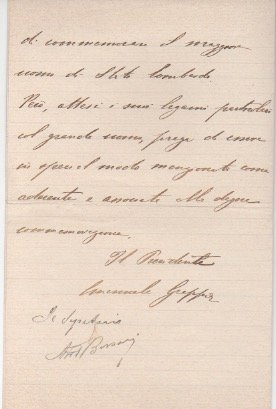 di commemorare il maggior
uomo di Stato lombardo.
Però, attesi i suoi legami particolari
col grande uomo, prega di
in modo
aderente e associato alla degna
commemorazione.
Il Presidente
Emanuele Greppi
Il Segretario